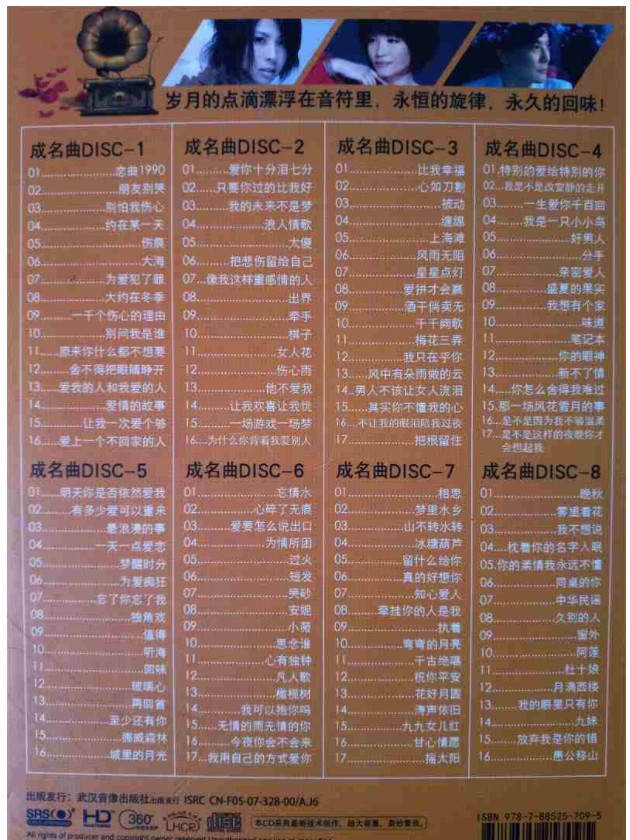 岁月的点滴漂浮在音符里，永恒的旋律，永久的回味！
成名曲DISC-1
01...恋曲1990
02...朋友别哭
03...别怕我伤心
04...约在某一天
05...伤痕
06...大海
07...为爱犯了罪
08...大约在冬季
09...一千个伤心的理由
10...别问我是谁
11...原来你什么都不想要
12...舍不得把眼睛睁开
13...爱我的人和我爱的人
14...爱情的故事
15...让我一次爱个够
16...爱上一个不回家的人
成名曲DISC-2
01...爱你十分泪七分
02...只要你过的比我好
03...我的未来不是梦
04...浪人情歌
05...太傻
06...把悲伤留给自己
07...像我这样重感情的人
08...出界
09...牵手
10...棋子
11...女人花
12...伤心雨
13...他不爱我
14...让我欢喜让我忧
15...一场游戏一场梦
16...为什么你背着我爱别人
成名曲DISC-3
01...比我幸福
02...心如刀割
03...被动
04...缠绵
05...上海滩
06...风雨无阻
07...星星点灯
08...爱拼才会赢
09...酒干倘卖无
10...千千阙歌
11...梅花三弄
12...我只在乎你
13...风中有朵雨做的云
14...男人不该让女人流泪
15...其实你不懂我的心
16...不让我的眼泪陪我过夜
17...把根留住
成名曲DISC-4
01.特别的爱给特别的你
02...我是不是该安静的走开
03...一生爱你千百回
04...我是一只小小鸟
05...好男人
06...分手
07...亲密爱人
08...盛夏的果实
09...我想有个家
10...味道
11...笔记本
12...你的眼神
13...新不了情
14...你怎么舍得我难过
15.那一场风花雪月的事
16...是不是因为我不够温柔
17...是不是这样的夜晚你才
会想起我
成名曲DISC-5
01...明天你是否依然爱我
02...有多少爱可以重来
03...最浪漫的事
04...一天一点爱恋
05...梦醒时分
06...为爱痴狂
07...忘了你忘了我
08...独角戏
09...值得
10...听海
11...回味
12...玻璃心
13...再回首
14...至少还有你
15...挪威森林
16...城里的月光
成名曲DISC-6
01...忘情水
02...心碎了无痕
03...爱要怎么说出口
04...为情所困
05...过火
06...短发
07...哭砂
08...安妮
09...小薇
10...思念谁
11...心有独钟
12...凡人歌
13...橄榄树
14...我可以抱你吗
15...无情的雨无情的你
16...今夜你会不会来
17...我用自己的方式爱你
成名曲DISC-7
01...相思
02...梦里水乡
03...山不转水转
04...冰糖葫芦
05...留什么给你
06...真的好想你
07...知心爱人
08...牵挂你的人是我
09...执着
10...弯弯的月亮
11...千古绝唱
12...祝你平安
13...花好月圆
14...涛声依旧
15...九九女儿红
16...甘心情愿
17...摇太阳
成名曲DISC-8
01...晚秋
02...雾里看花
03...我不想说
04...枕着你的名字入眠
05.你的柔情我永远不懂
06...同桌的你
07...中华民谣
08...久别的人
09...窗外
10...阿莲
11...杜十娘
12...月满西楼
13...我的眼里只有你
14...九妹
15...放弃我是你的错
16...愚公移山
出版发行：武汉音像出版社出版发行 ISRC CN-F05-07-328-00/A.J6
SRS HD 360° disc 本CD采用最新技术制作，超大容量，
ISBN 978-7-88525-709-5
All rights of producer and